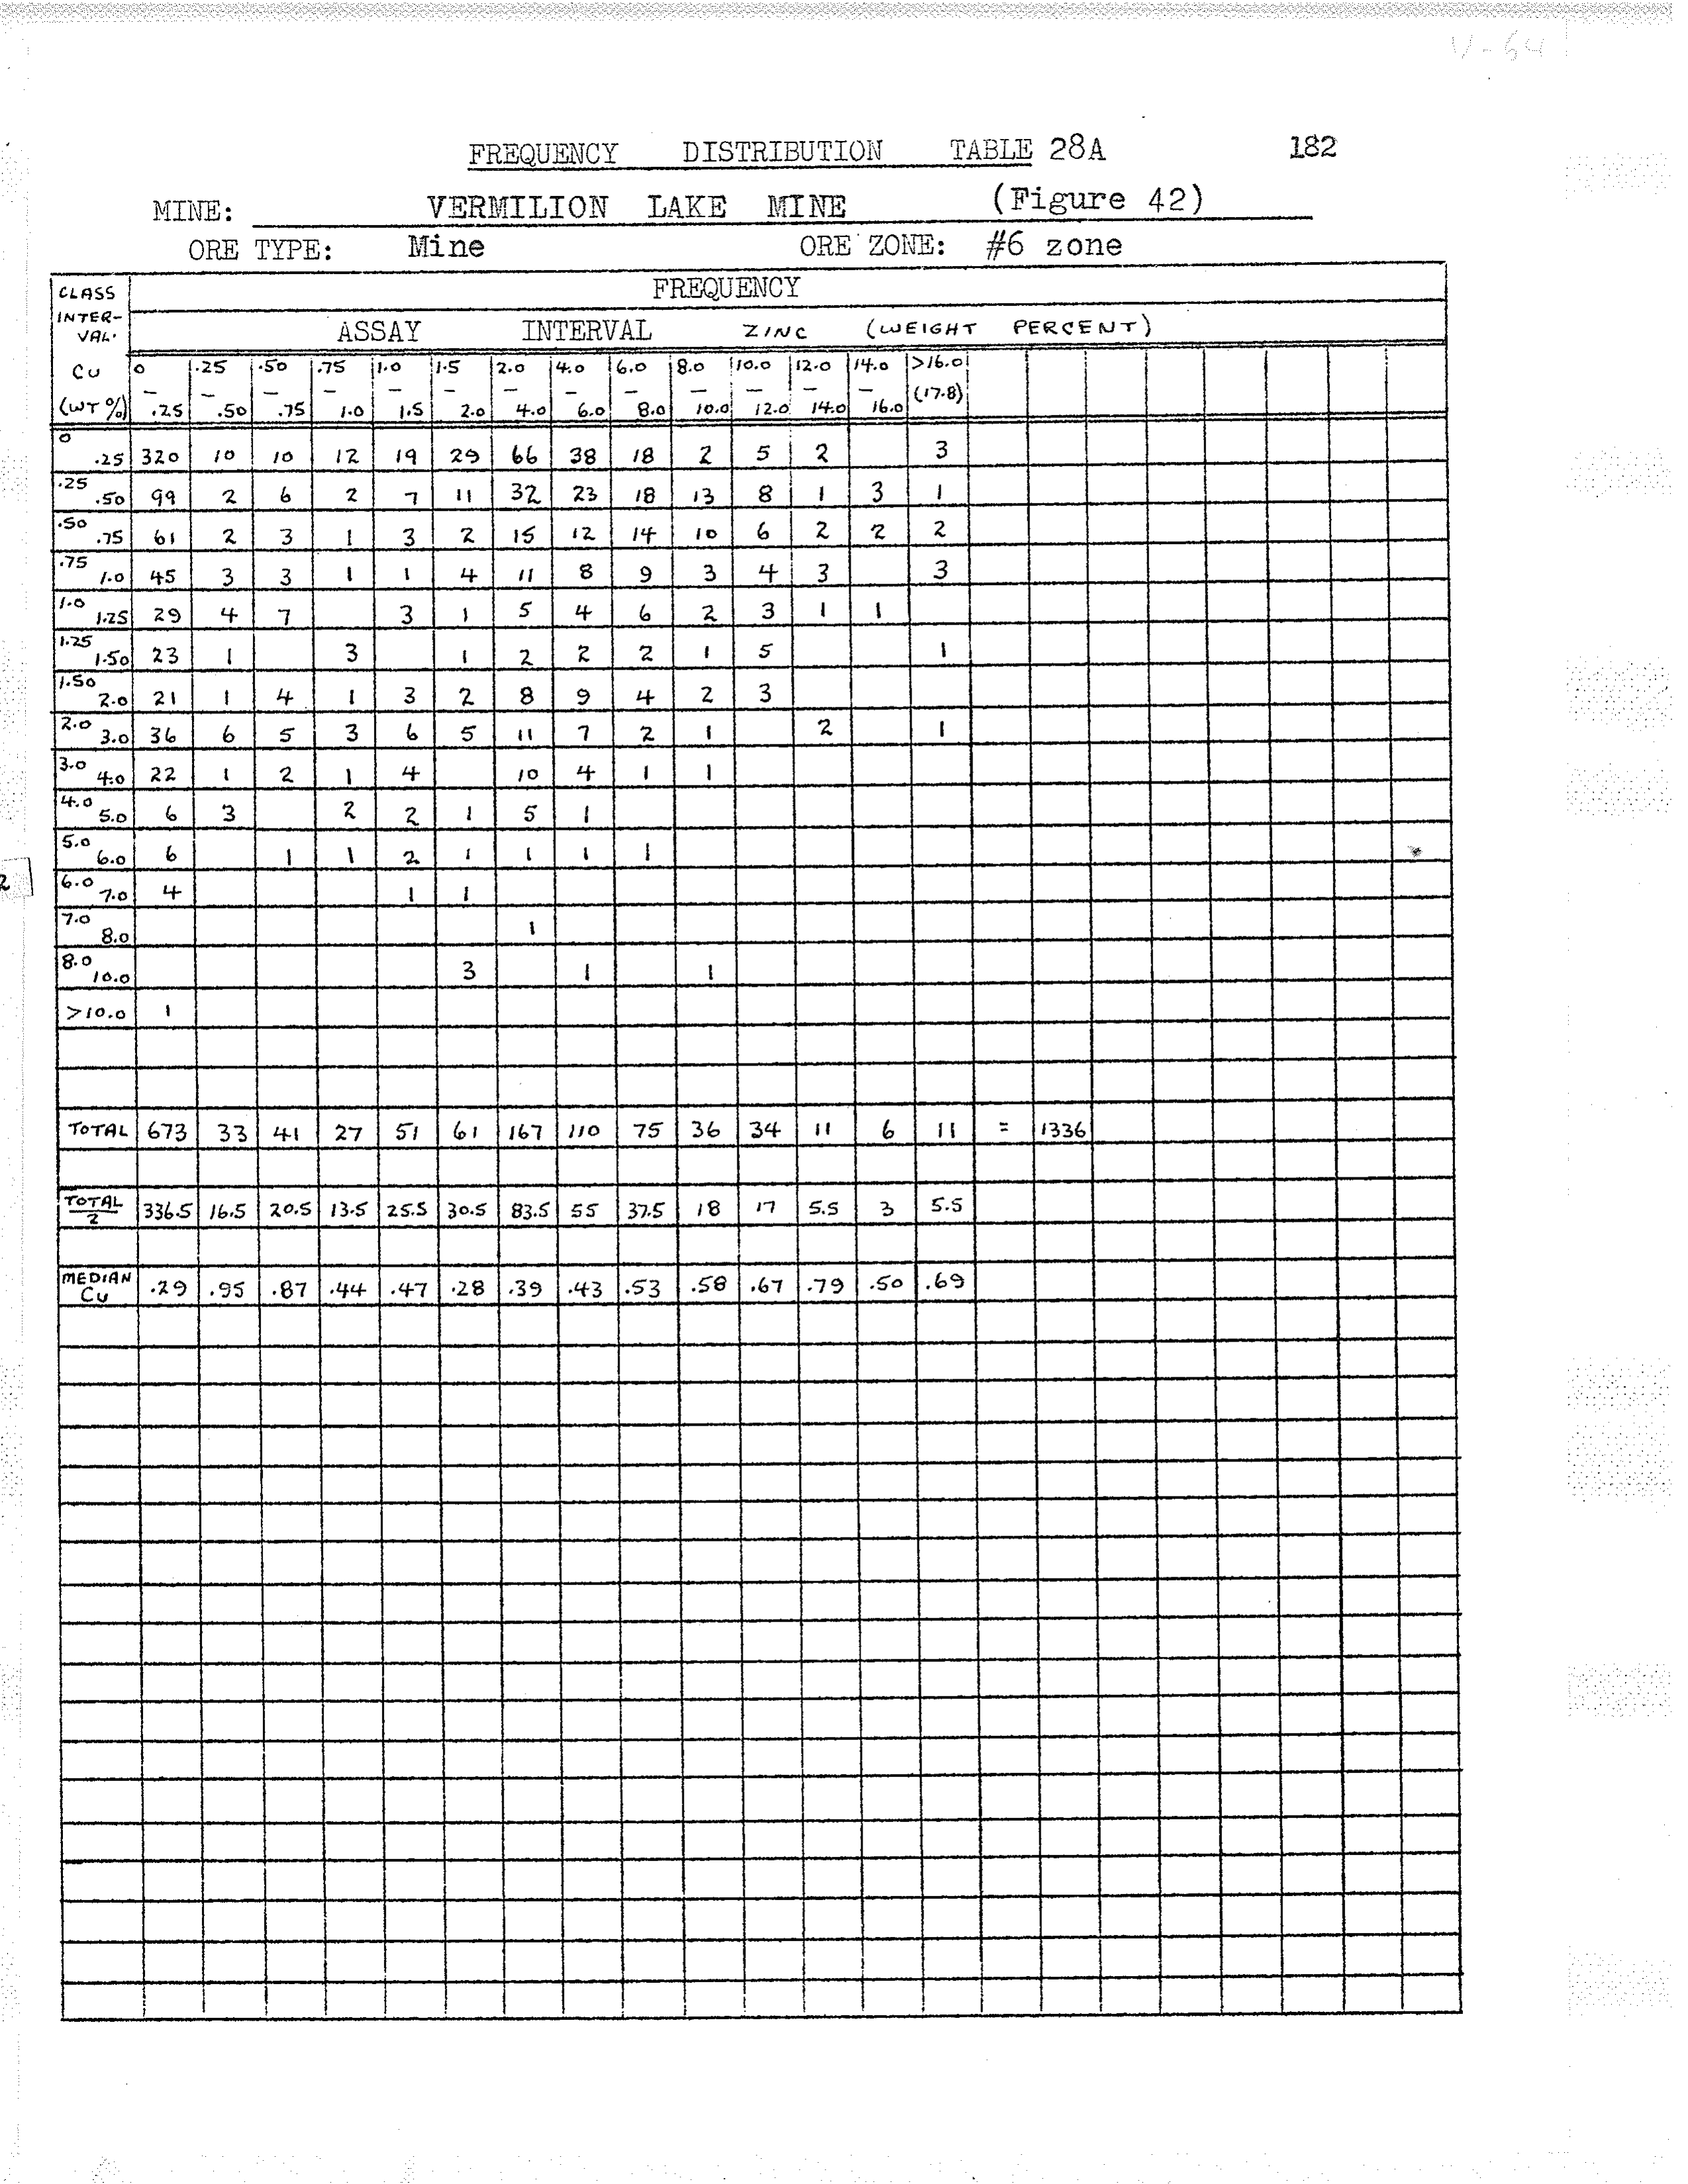 V-64
FREQUENCY DISTRIBUTION TABLE 28A 182
MINE: VERMILION LAKE MINE (Figure 42)
ORE TYPE: Mine ORE ZONE: #6 zone
CLASS INTER- VAL. Cu (WT %)
FREQUENCY
ASSAY INTERVAL ZINC (WEIGHT PERCENT)
0 .25 .50 .75 1.0 1.5 2.0 4.0 6.0 8.0 10.0 12.0 14.0 >16.0
– – – – – – – – – – – – – (17.8)
.25 .50 .75 1.0 1.5 2.0 4.0 6.0 8.0 10.0 12.0 14.0 16.0
0 .25 320 10 10 12 19 29 66 38 18 2 5 2 3
.25 .50 99 2 6 2 7 11 32 23 18 13 8 1 3 1
.50 .75 61 2 3 1 3 2 15 12 14 10 6 2 2 2
.75 1.0 45 3 3 1 1 4 11 8 9 3 4 3 3
1.0 1.25 29 4 7 3 1 5 4 6 2 3 1 1
1.25 1.50 23 1 3 1 2 2 2 1 5 1
1.50 2.0 21 1 4 1 3 2 8 9 4 2 3
2.0 3.0 36 6 5 3 6 5 11 7 2 1 2 1
3.0 4.0 22 1 2 1 4 10 4 1 1
4.0 5.0 6 3 2 2 1 5 1
5.0 6.0 6 1 1 2 1 1 1 1
6.0 7.0 4 1 1
7.0 8.0 1
8.0 10.0 3 1 1
>10.0 1
TOTAL 673 33 41 27 51 61 167 110 75 36 34 11 6 11 = 1336
TOTAL 2 336.5 16.5 20.5 13.5 25.5 30.5 83.5 55 37.5 18 17 5.5 3 5.5
MEDIAN Cu .29 .95 .87 .44 .47 .28 .39 .43 .53 .58 .67 .79 .50 .69
2